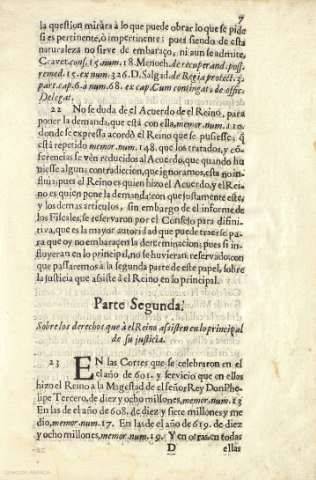 7
la question mirara à lo que puede obrar lo que se pide
si es pertinente, ò impertinente; pues siendo de esta
naturaleza no sirve de embaraço, ni aun se admite,
Cravet. cons. 15. num. 18. Menoch. de recuperand. poss.
remed. 15. ex num. 326. D. Salgad. de Regia protect. 3.
part. cap. 6. à num. 68. ex cap. Cum contingat, de offic.
Delegat.
22 No se duda de el Acuerdo de el Reino, para
poner la demanda, que està con ella, memor. num. 120.
donde se expressa acordò el Reino que se pusiesse, q̃
està repetido memor. num. 148. que los tratados, y cõ-
ferencias se vèn reducidos al Acuerdo, que quando hu
viesse alguna contradicion, que ignoramos, esta no in-
fluìa; pues el Reino es quien hizo el Acuerdo, y el Rei-
no es quien pone la demanda; con que justamente este,
y los demas articulos, sin embargo de el informe de
los Fiscales, se reservaron por el Consejo para difini-
tiva, que es la mayor autoridad que puede traerse pa-
ra que oy no embaraçen la determinacion; pues si in-
fluyeran en lo principal, no se huvieran reservado: con
que passaremos à la segunda parte de este papel, sobre
la justicia que assiste à el Reino en lo principal.
Parte Segunda;
Sobre los derechos que à el Reino assisten en lo principal
de su justicia.
23 EN las Cortes que se celebraron en el
el año de 601. y servicio que en ellos
hizo el Reino a la Magestad de el señor Rey Don Phe-
lipe Tercero, de diez y ocho millones, memor. num. 13
En las de el año de 608. de diez y siete millones y me
dio, memor. num. 17. En las de el año de 619. de diez
y ocho millones, memor. num. 19. Y en otras, en todas
D ellas